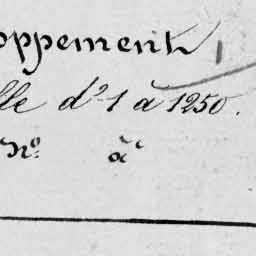 oppement
lle d'1 à 1250.
Nº à